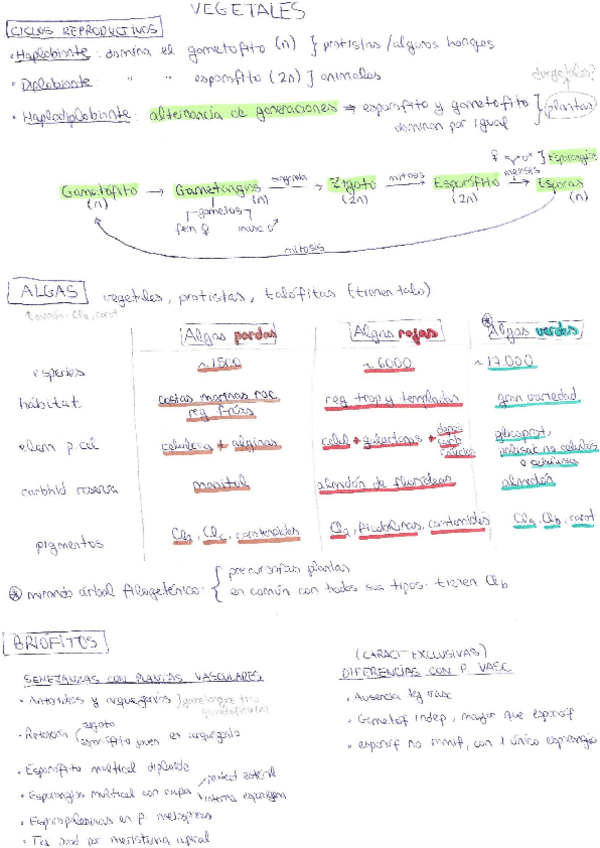 VEGETALES
CICLOS REPRODUCTIVOS
• Haplobionte: domina el gametofito (n) } protistas/algunos hongos
• Diplobionte: " " esporofito (2n) } animales
• Haplodiplobionte: alternancia de generaciones ⇒ esporofito y gametofito } (plantas)
dominan por igual
♀ ♂ } Esporangios
Gametófito → Gametangios → Zigoto mitosis → Esporófito meiosis → Esporas
(n) (n) (2n) (2n) (n)
gametos
fem ♀ masc ♂
mitosis
ALGAS vegetales, protistas, talófitas (tienen talo)
Algas pardas Algas rojas Algas verdes
especies ~1500 ~6000 ~17.000
hábitat costas marinas roc reg trop y templadas gran variedad
reg frías
elem p.cel celulosa + alginas celul + galactanos + depós carb calcico glicoprot, polisac no celulos o celulosa
carbhid reserva manitol almidón de florideas almidón
pigmentos Cla, Clc, carotenoides Cla, ficobilinas, carotenoides Cla, Clb, carot
⊛ mirando árbol filogenético: { precursoras plantas
en común con todos sus tipos: tienen Clb
BRIÓFITOS
SEMEJANZAS CON PLANTAS VASCULARES
• Anteridios y arquegonios } gametangios
• Retención zigoto
esporófito joven en arquegonio
• Esporófito multicel diploide
• Esporangios multicel con capa pared estéril
interna esporógen
• Esporopoleninas en p. meiosporas
• Tej prod por meristema apical
(CARACT EXCLUSIVAS)
DIFERENCIAS CON P. VASC
• Ausencia tej vasc
• Gametof indep, mayor que esporof
• esporof no ramif, con 1 único esporangio